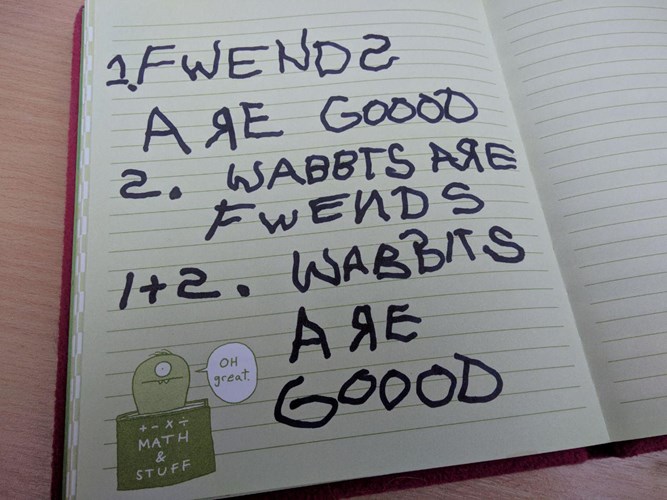 1. FWENDS
AЯE GOOOD
2. WABBTS AЯE
FWEИDS
1+2. WABBITS
AЯE
GOOOD
OH
great.
+ - × ÷
MATH
&
STUFF